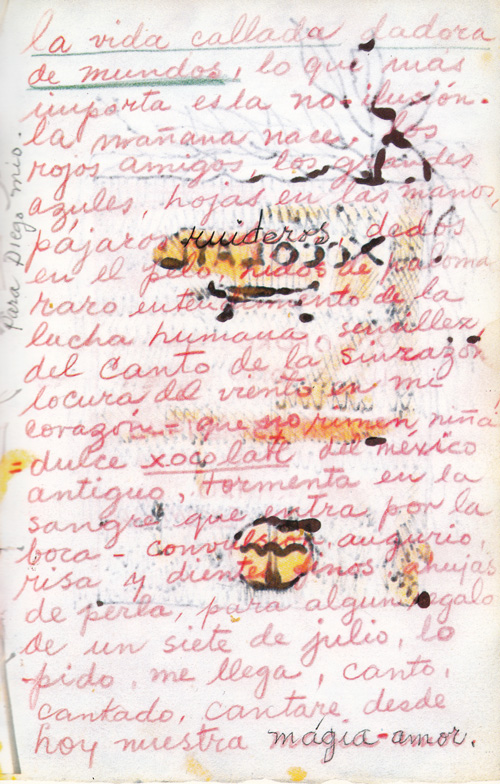 la vida callada dadora
de mundos, lo que mas
importa es la no-ilusión.
la mañana nace, los
rojos amigos, los grandes
azules, hojas en las manos,
pájaros ruideros, dedos
en el pelo, nidos de paloma
raro entendimiento de la
lucha humana, sencillez
del canto de la sinrazón
locura del viento en mi
corazón = que no rimen niña
= dulce xocolatl del méxico
antiguo, tormenta en la
sangre que entra por la
boca - convulsión, augurio,
risa y dientes finos ahujas
de perla, para algun regalo
de un siete de julio, lo
pido, me llega, canto,
cantado, cantaré desde
hoy nuestra mágia - amor.
Para Diego mio.